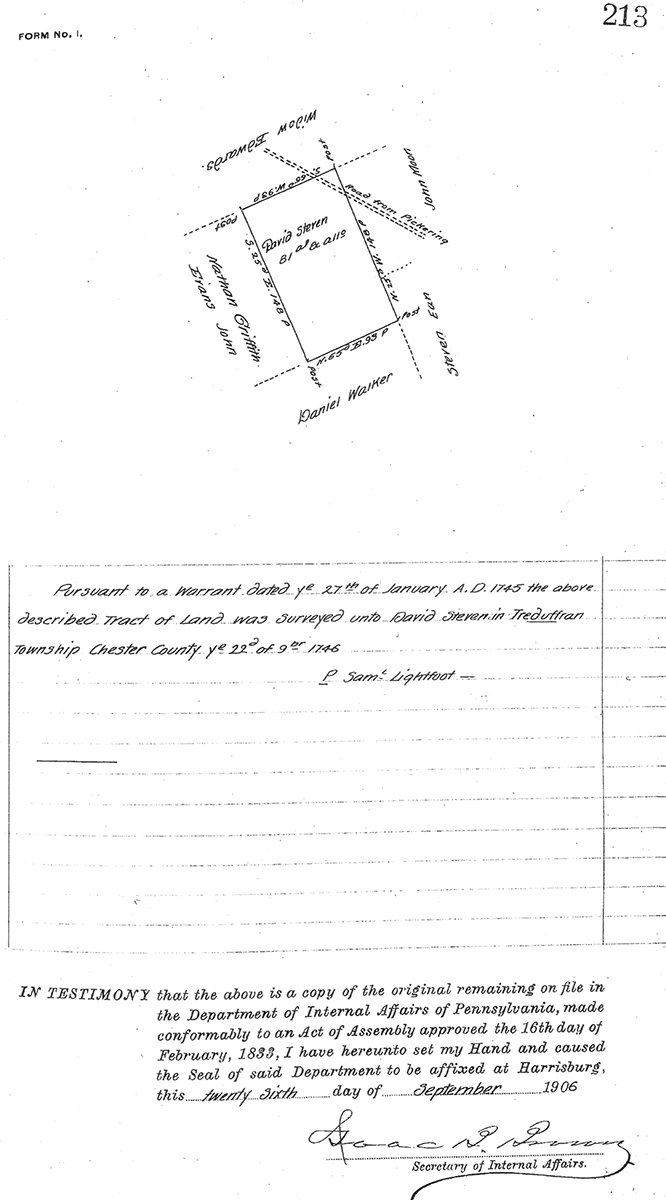 213
FORM No. 1.
Widow Edwards.
Post
John Moon
S. 65° W. 93 P
Road from Pickering
Post
David Steven
81 a s & all o
S. 25° E. 148 P
N. 25° W. 148 P
Nathan Griffith
Evans John
Post
Steven Eun
N. 65° E. 93 P
Post
Daniel Walker
Pursuant to a Warrant dated ye 27th of January A.D. 1745 the above
described Tract of Land was Surveyed unto David Steven in Treduffran
Township Chester County ye 22d of 9br 1746
P Saml Lightfoot —
IN TESTIMONY that the above is a copy of the original remaining on file in
the Department of Internal Affairs of Pennsylvania, made
conformably to an Act of Assembly approved the 16th day of
February, 1833, I have hereunto set my Hand and caused
the Seal of said Department to be affixed at Harrisburg,
this twenty Sixth day of September 1906
Isaac B. Brown
Secretary of Internal Affairs.